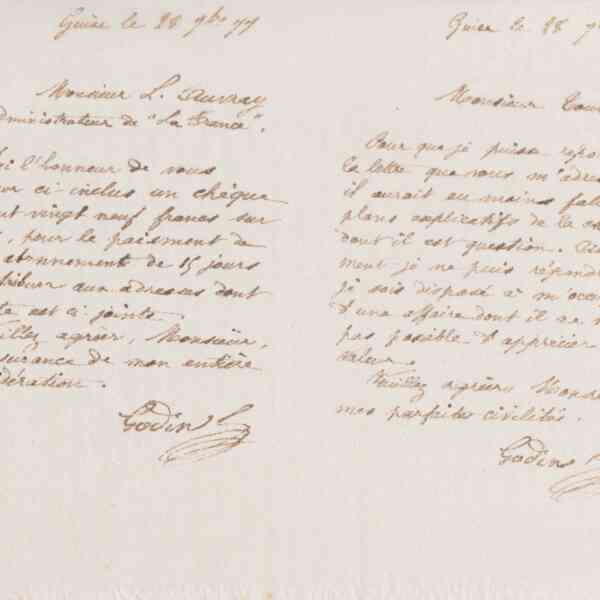 Guise le 28 9bre 77
Monsieur L. Auvray
dministrateur de "La France".
i l'honneur de vous
er ci-inclus un chèque
nt vingt neuf francs sur
, pour le paiement de
abonnement de 15 jours
tribuer aux adresses dont
te est ci jointe.
Veuillez agréer, Monsieur,
surance de mon entière
idération.
Godin
Guise le 28 9
Monsieur
Pour que je puisse répo
la lettre que vous m'adres
il aurait au moins fall
plans explicatifs de la
dont il est question.
ment je ne puis répondre
je sois disposé à m'occu
d'une affaire dont il ne m'
pas possible d'apprécier
valeur.
Veuillez agréer, Monsie
mes parfaites civilités.
Godin